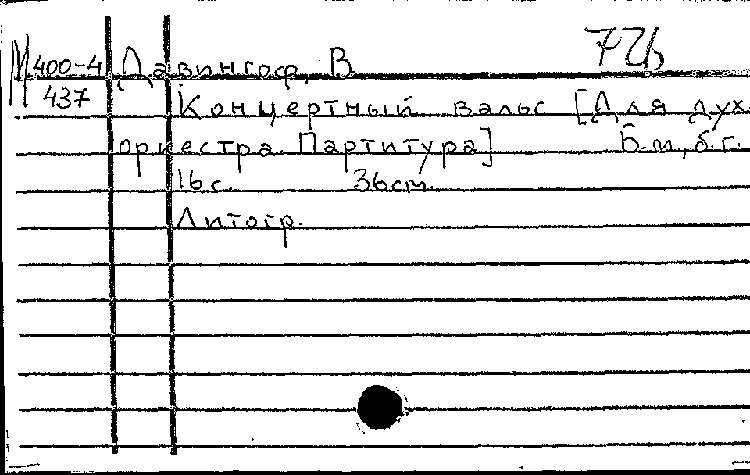 72б
М 400-4 Давингоф, В.
437 Концертный вальс [Для дух.
оркестра. Партитура] Б.м., б.г.
16 с. 36 см.
Литогр.